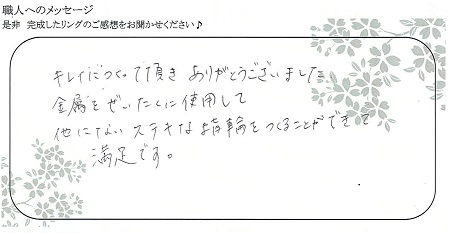 職人へのメッセージ
是非 完成したリングのご感想をお聞かせください♪
キレイにつくって頂き ありがとうございました
金属をぜいたくに使用して
他にない ステキな指輪をつくることができて
満足です。